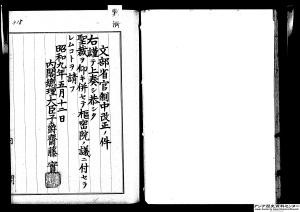 文部省官制中改正ノ件
右謹テ上奏シ恭シク
聖裁ヲ仰キ併セテ枢密院ノ議ニ付セラ
レムコトヲ請フ
昭和九年五月十二日
内閣総理大臣子爵斎藤實
アジア歴史資料センター